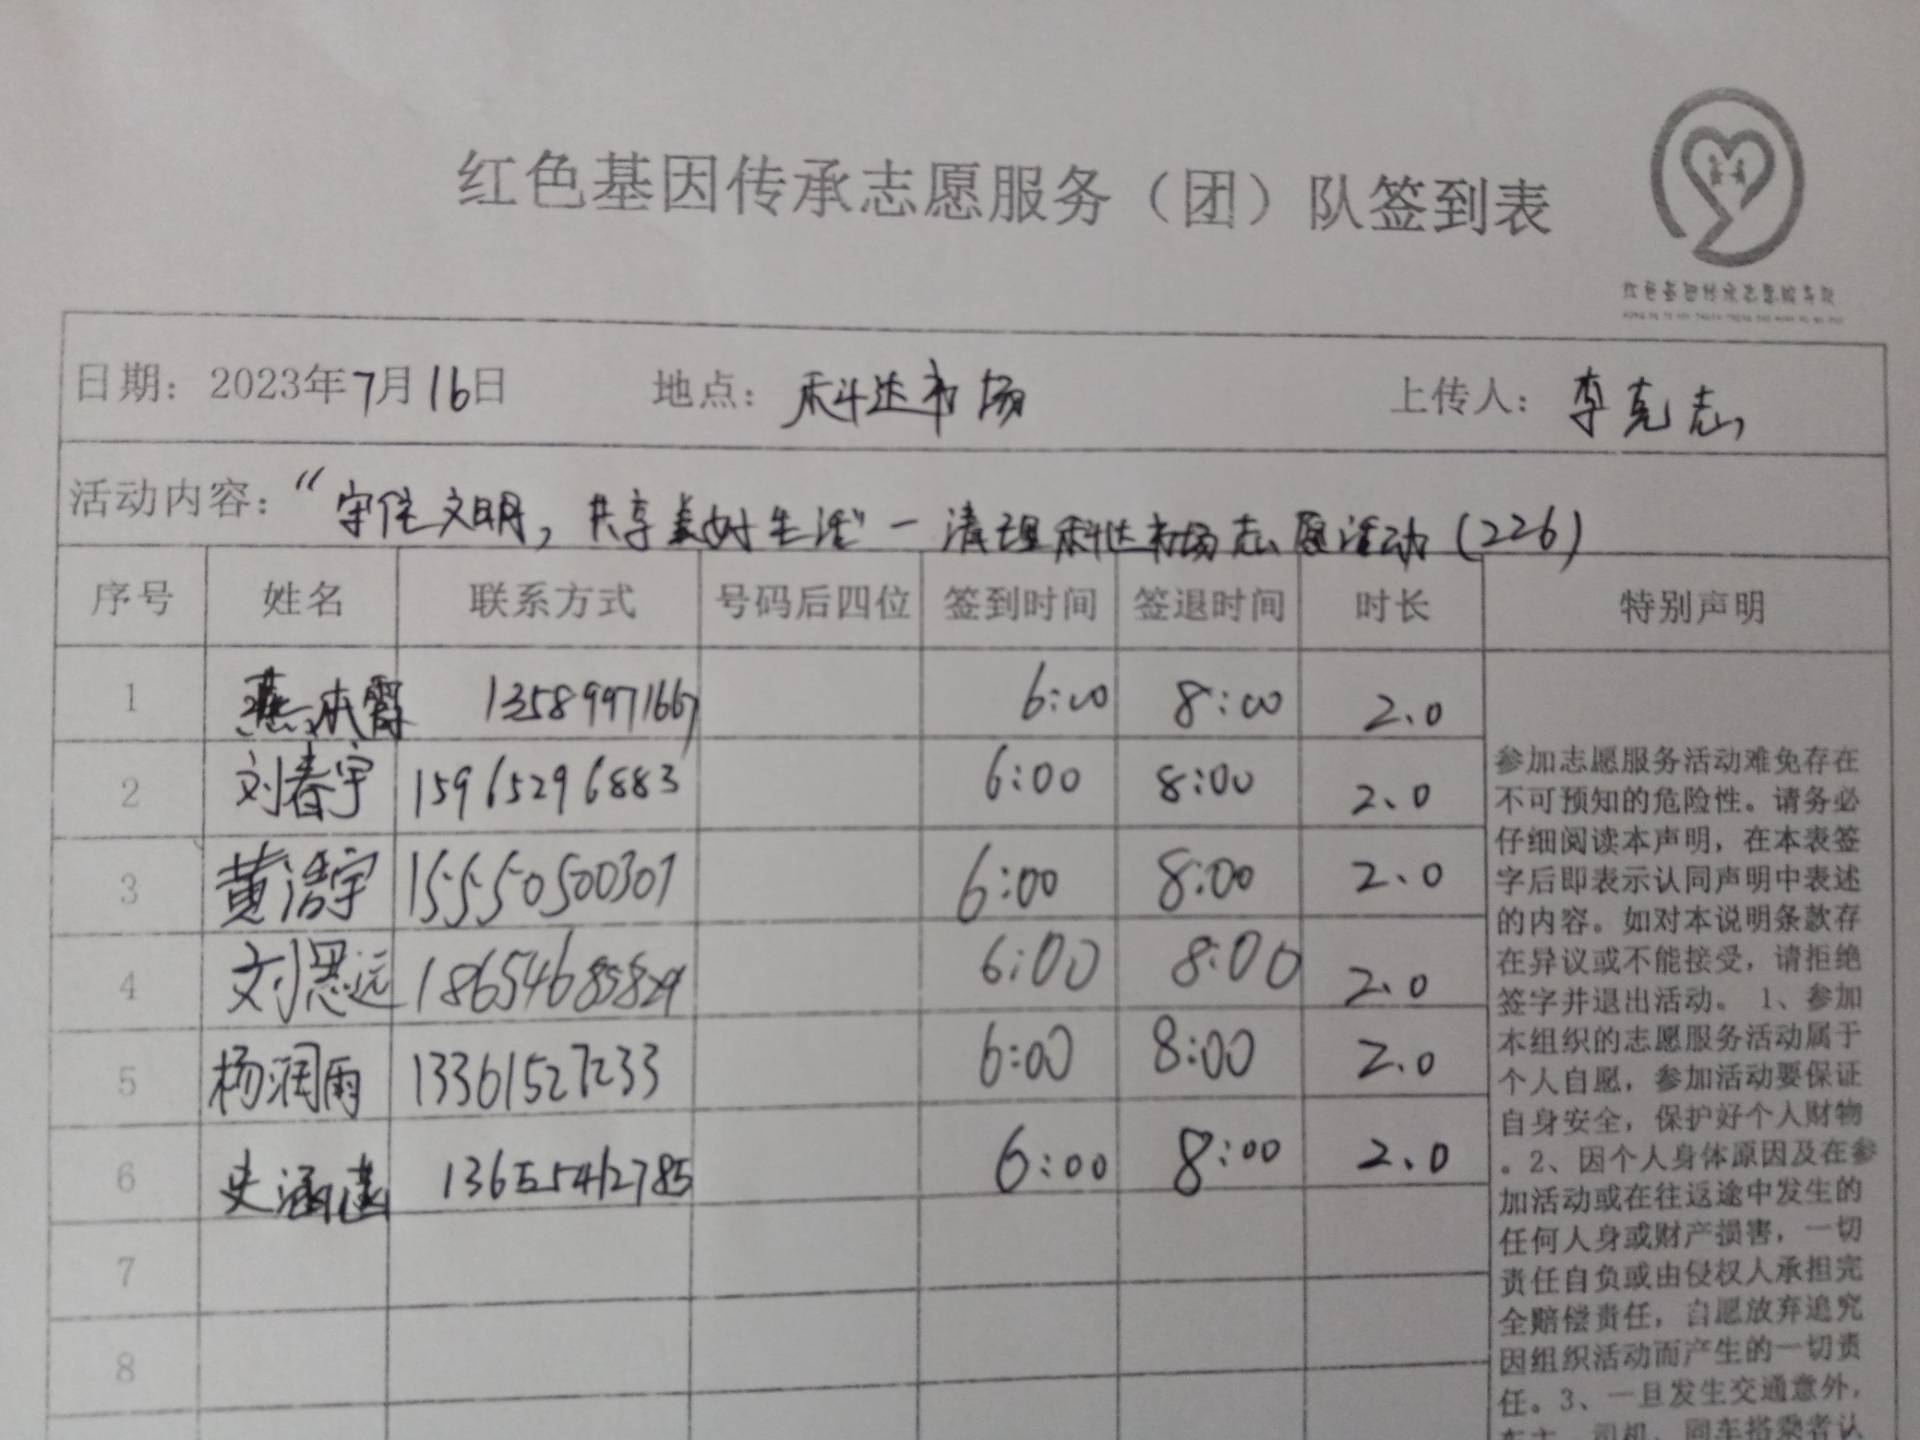 红色基因传承志愿服务（团）队签到表
红色基因传承志愿服务队
日期：2023年7月16日 地点：科达市场 上传人：李克志
活动内容：“守住文明，共享美好生活”—清理科达市场志愿活动（226）
序号 姓名 联系方式 号码后四位 签到时间 签退时间 时长 特别声明
1 燕本霞 13589971667 6:00 8:00 2.0
2 刘春宇 15965296883 6:00 8:00 2.0
3 黄浩宇 15550500307 6:00 8:00 2.0
4 刘思远 18654685829 6:00 8:00 2.0
5 杨润雨 13361527233 6:00 8:00 2.0
6 史涵 13655412785 6:00 8:00 2.0
7
8
参加志愿服务活动难免存在
不可预知的危险性。请务必
仔细阅读本声明，在本表签
字后即表示认同声明中表述
的内容。如对本说明条款存
在异议或不能接受，请拒绝
签字并退出活动。 1、参加
本组织的志愿服务活动属于
个人自愿，参加活动要保证
自身安全，保护好个人财物
。2、因个人身体原因及在参
加活动或在往返途中发生的
任何人身或财产损害，一切
责任自负或由侵权人承担完
全赔偿责任，自愿放弃追究
因组织活动而产生的一切责
任。3、一旦发生交通意外，
车主、司机、同车搭乘者认